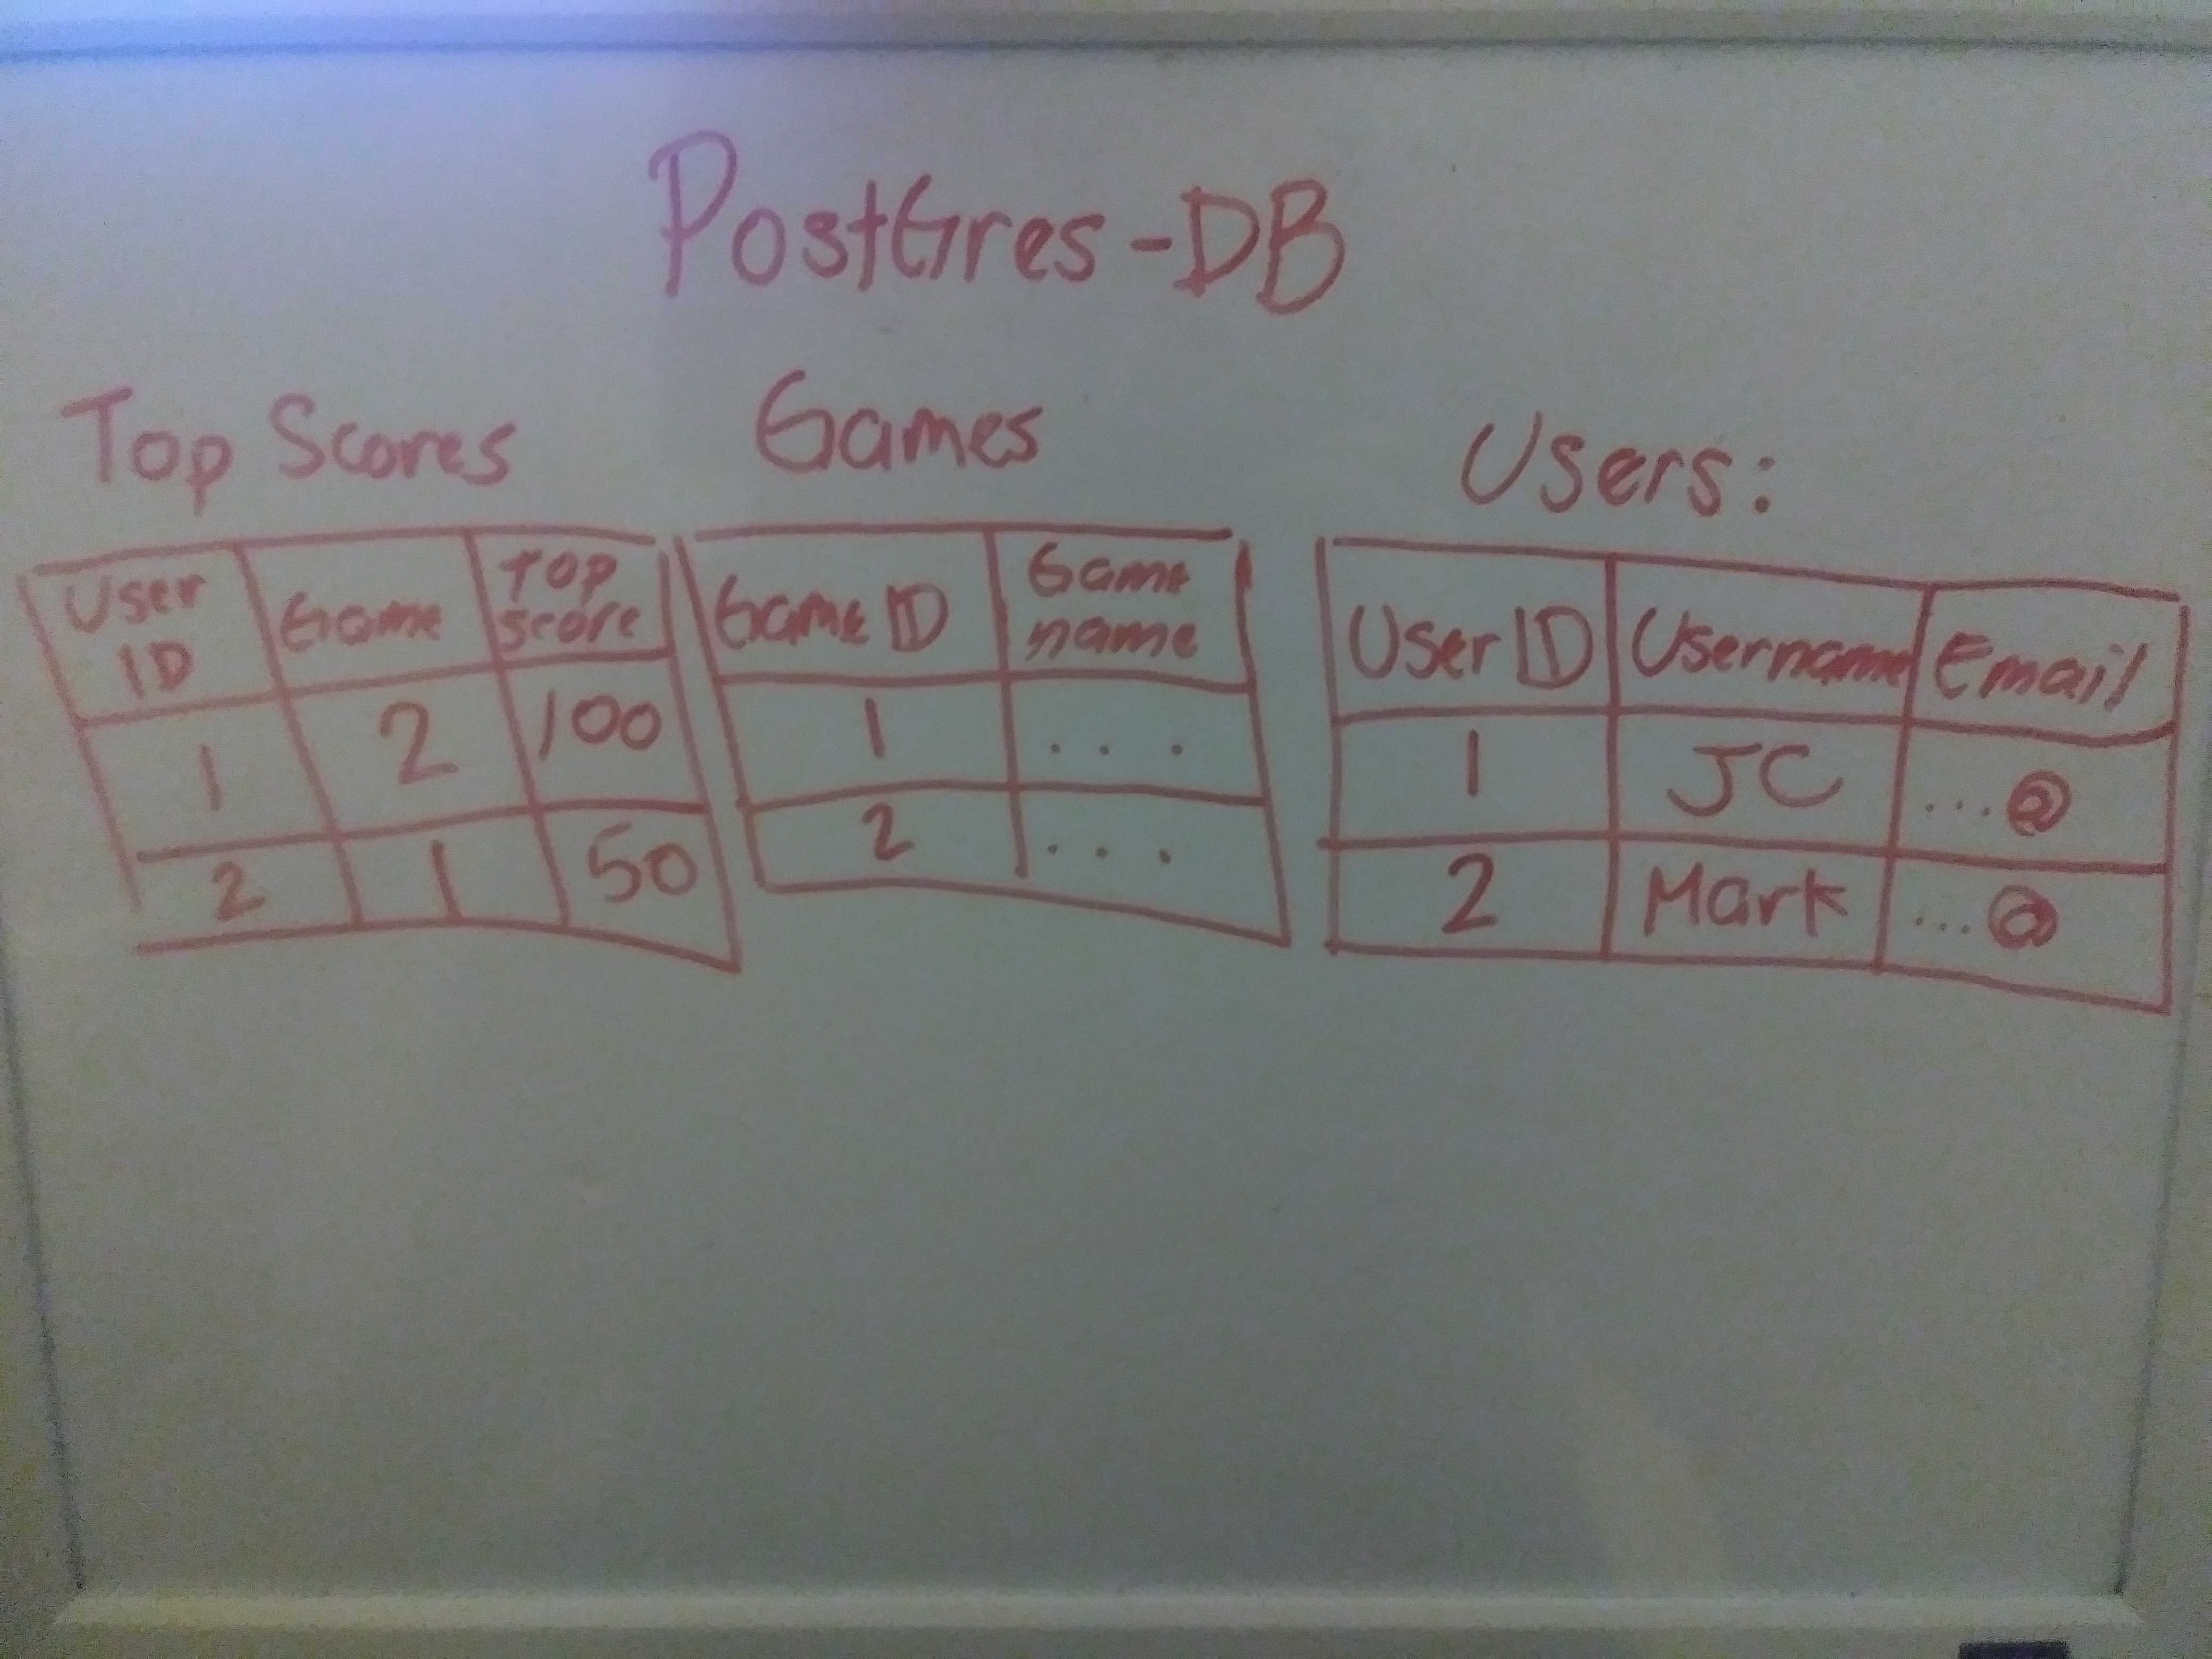 PostGres-DB
Top Scores
User ID Game Top score
1 2 100
2 1 50
Games
Game ID Game name
1 ...
2 ...
Users:
User ID Username Email
1 JC ...@
2 Mark ...@